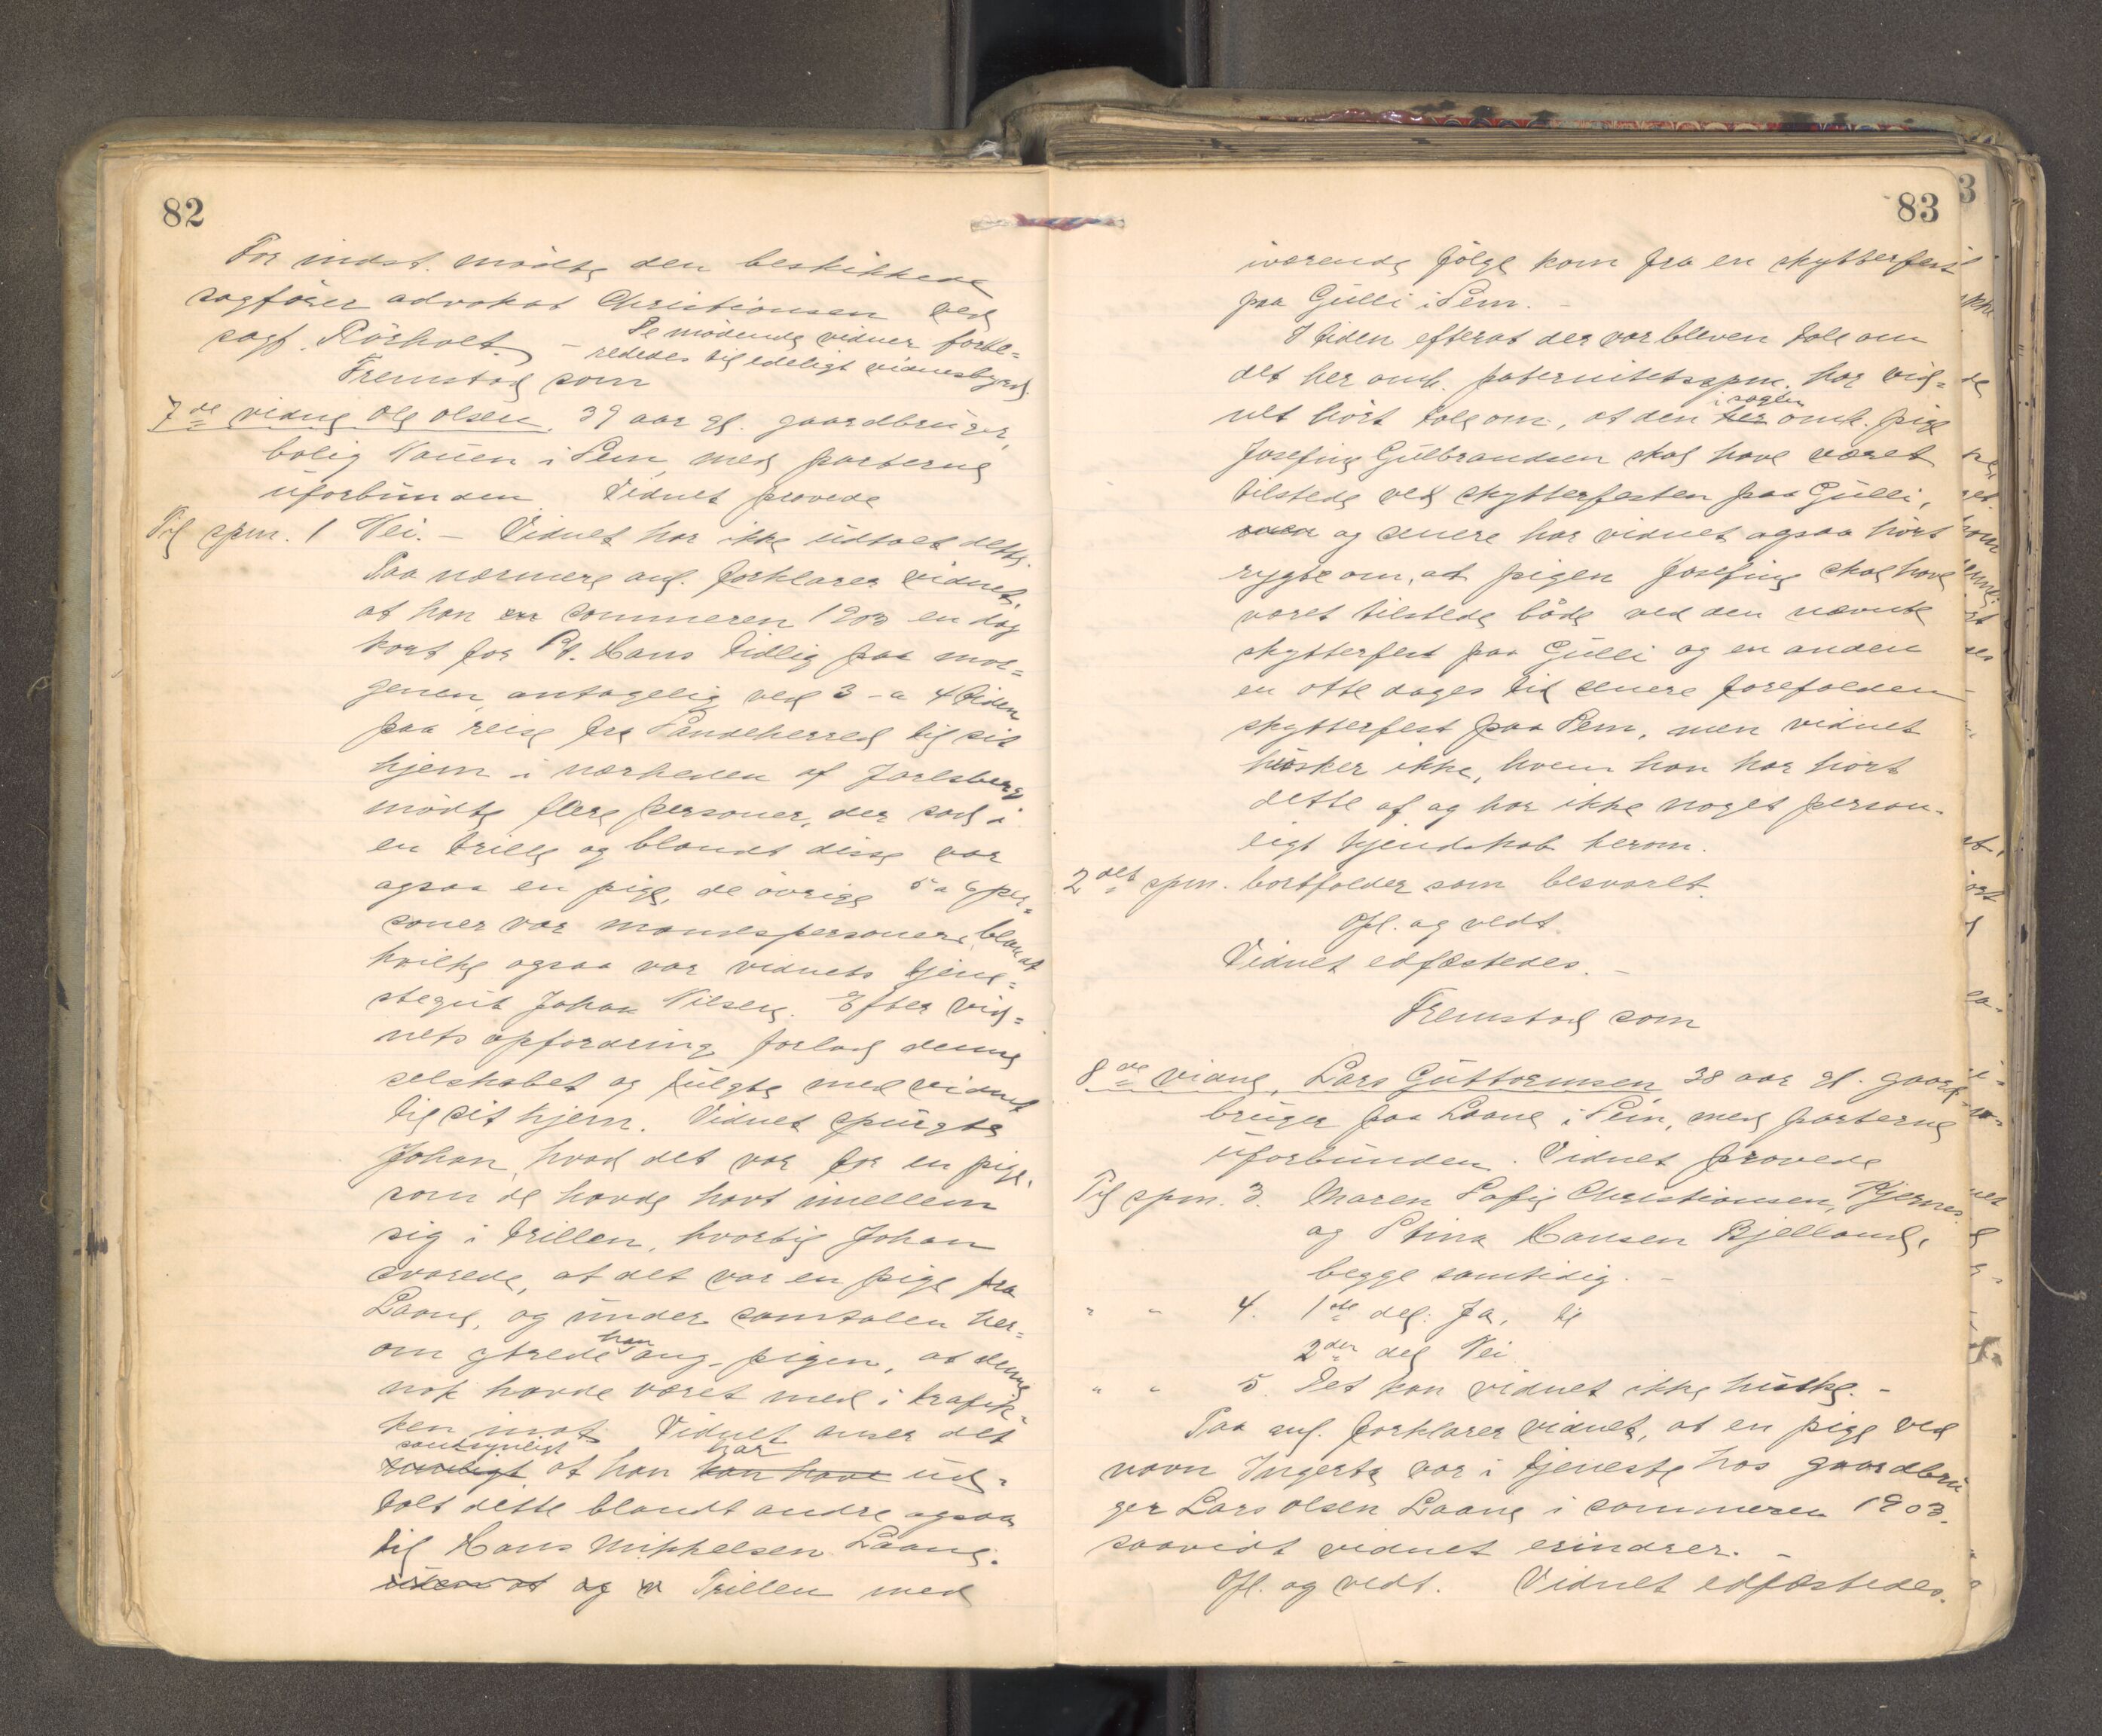 82
For indst. mødte den beskikkede
sagfører advokat Christiansen ved
sagf. Rørholt. – De mødende vidner forbe-
rededes til edeligt vidnesbyrd.
Fremstod som
7de vidne Ole Olsen, 39 aar gl. gaardbruger,
bolig Nauen i Sem, med parterne
uforbunden Vidnet provede
Til spm. 1 Nei. – Vidnet har ikke udtalt dette.
Paa nærmere anl. forklarer vidnet,
at han sommeren 1903 en dag
kort før St. Hans tidlig paa mor-
genen antagelig ved 3 – a 4 tiden
paa reise fra Sandeherred til sit
hjem i nærheden af Jarlsberg
mødte flere personer, der sad i
en trille og blandt disse var
ogsaa en pige, de øvrige 5 a 6 per-
soner var mandspersoner, blandt
hvilke ogsaa var vidnets tjene-
stegut Johan Nilsen. Efter vid-
nets opfordring forlod denne
selskabet og fulgte med vidnet
til sit hjem. Vidnet spurgte
Johan, hvad det var for en pige,
som de havde havt imellem
sig i trillen, hvortil Johan
svarede, at det var en pige fra
Laane, og under samtalen her-
om ytrede han ang. pigen, at denne
nok havde været med i trafik-
ken inat. Vidnet anser det
sandsynligt har
rimeligt at han kan have ud-
talt dette blandt andre ogsaa
til Hans Mikkelsen Laane.
uten at og Trillen med
83
iværende følge kom fra en skytterfest
paa Gulli i Sem. –
I tiden efterat der var bleven tale om
det her omh. paternitetsspm. har vid-
i sagen
net hørt tale om, at den her omh. pige
Josefine Gulbrandsen skal have været
tilstede ved skytterfesten paa Gulli,
men og senere har vidnet ogsaa hørt
rygte om, at pigen Josefine skal have
været tilstede både ved den nævnte
skytterfest paa Gulli og en anden
en otte dages tid senere forefalden
skytterfest paa Sem, men vidnet
husker ikke, hvem han har hørt
dette af og har ikke noget person-
ligt kjendskab herom.
2det spm. bortfalder som besvaret.
Opl. og vedt.
Vidnet edfæstedes. –
Fremstod som
8de vidne, Lars Guttormsen 38 aar gl. gaard-
bruger paa Laane i Sem, med parterne
uforbunden. Vidnet provede
Til spm. 3. Maren Sofie Christiansen, Hjernes
og Stina Hansen Bjelland,
begge samtidig. –
" " 4. 1ste del: Ja, til
2den del Nei
" " 5. Det kan vidnet ikke huske. –
Paa anl. forklarer vidnet, at en pige ved
navn Ingerta var i tjeneste hos gaardbru
ger Lars Olsen Laane i sommeren 1903.
saavidt vidnet erindrer. –
Opl. og vedt. Vidnet edfæstedes.